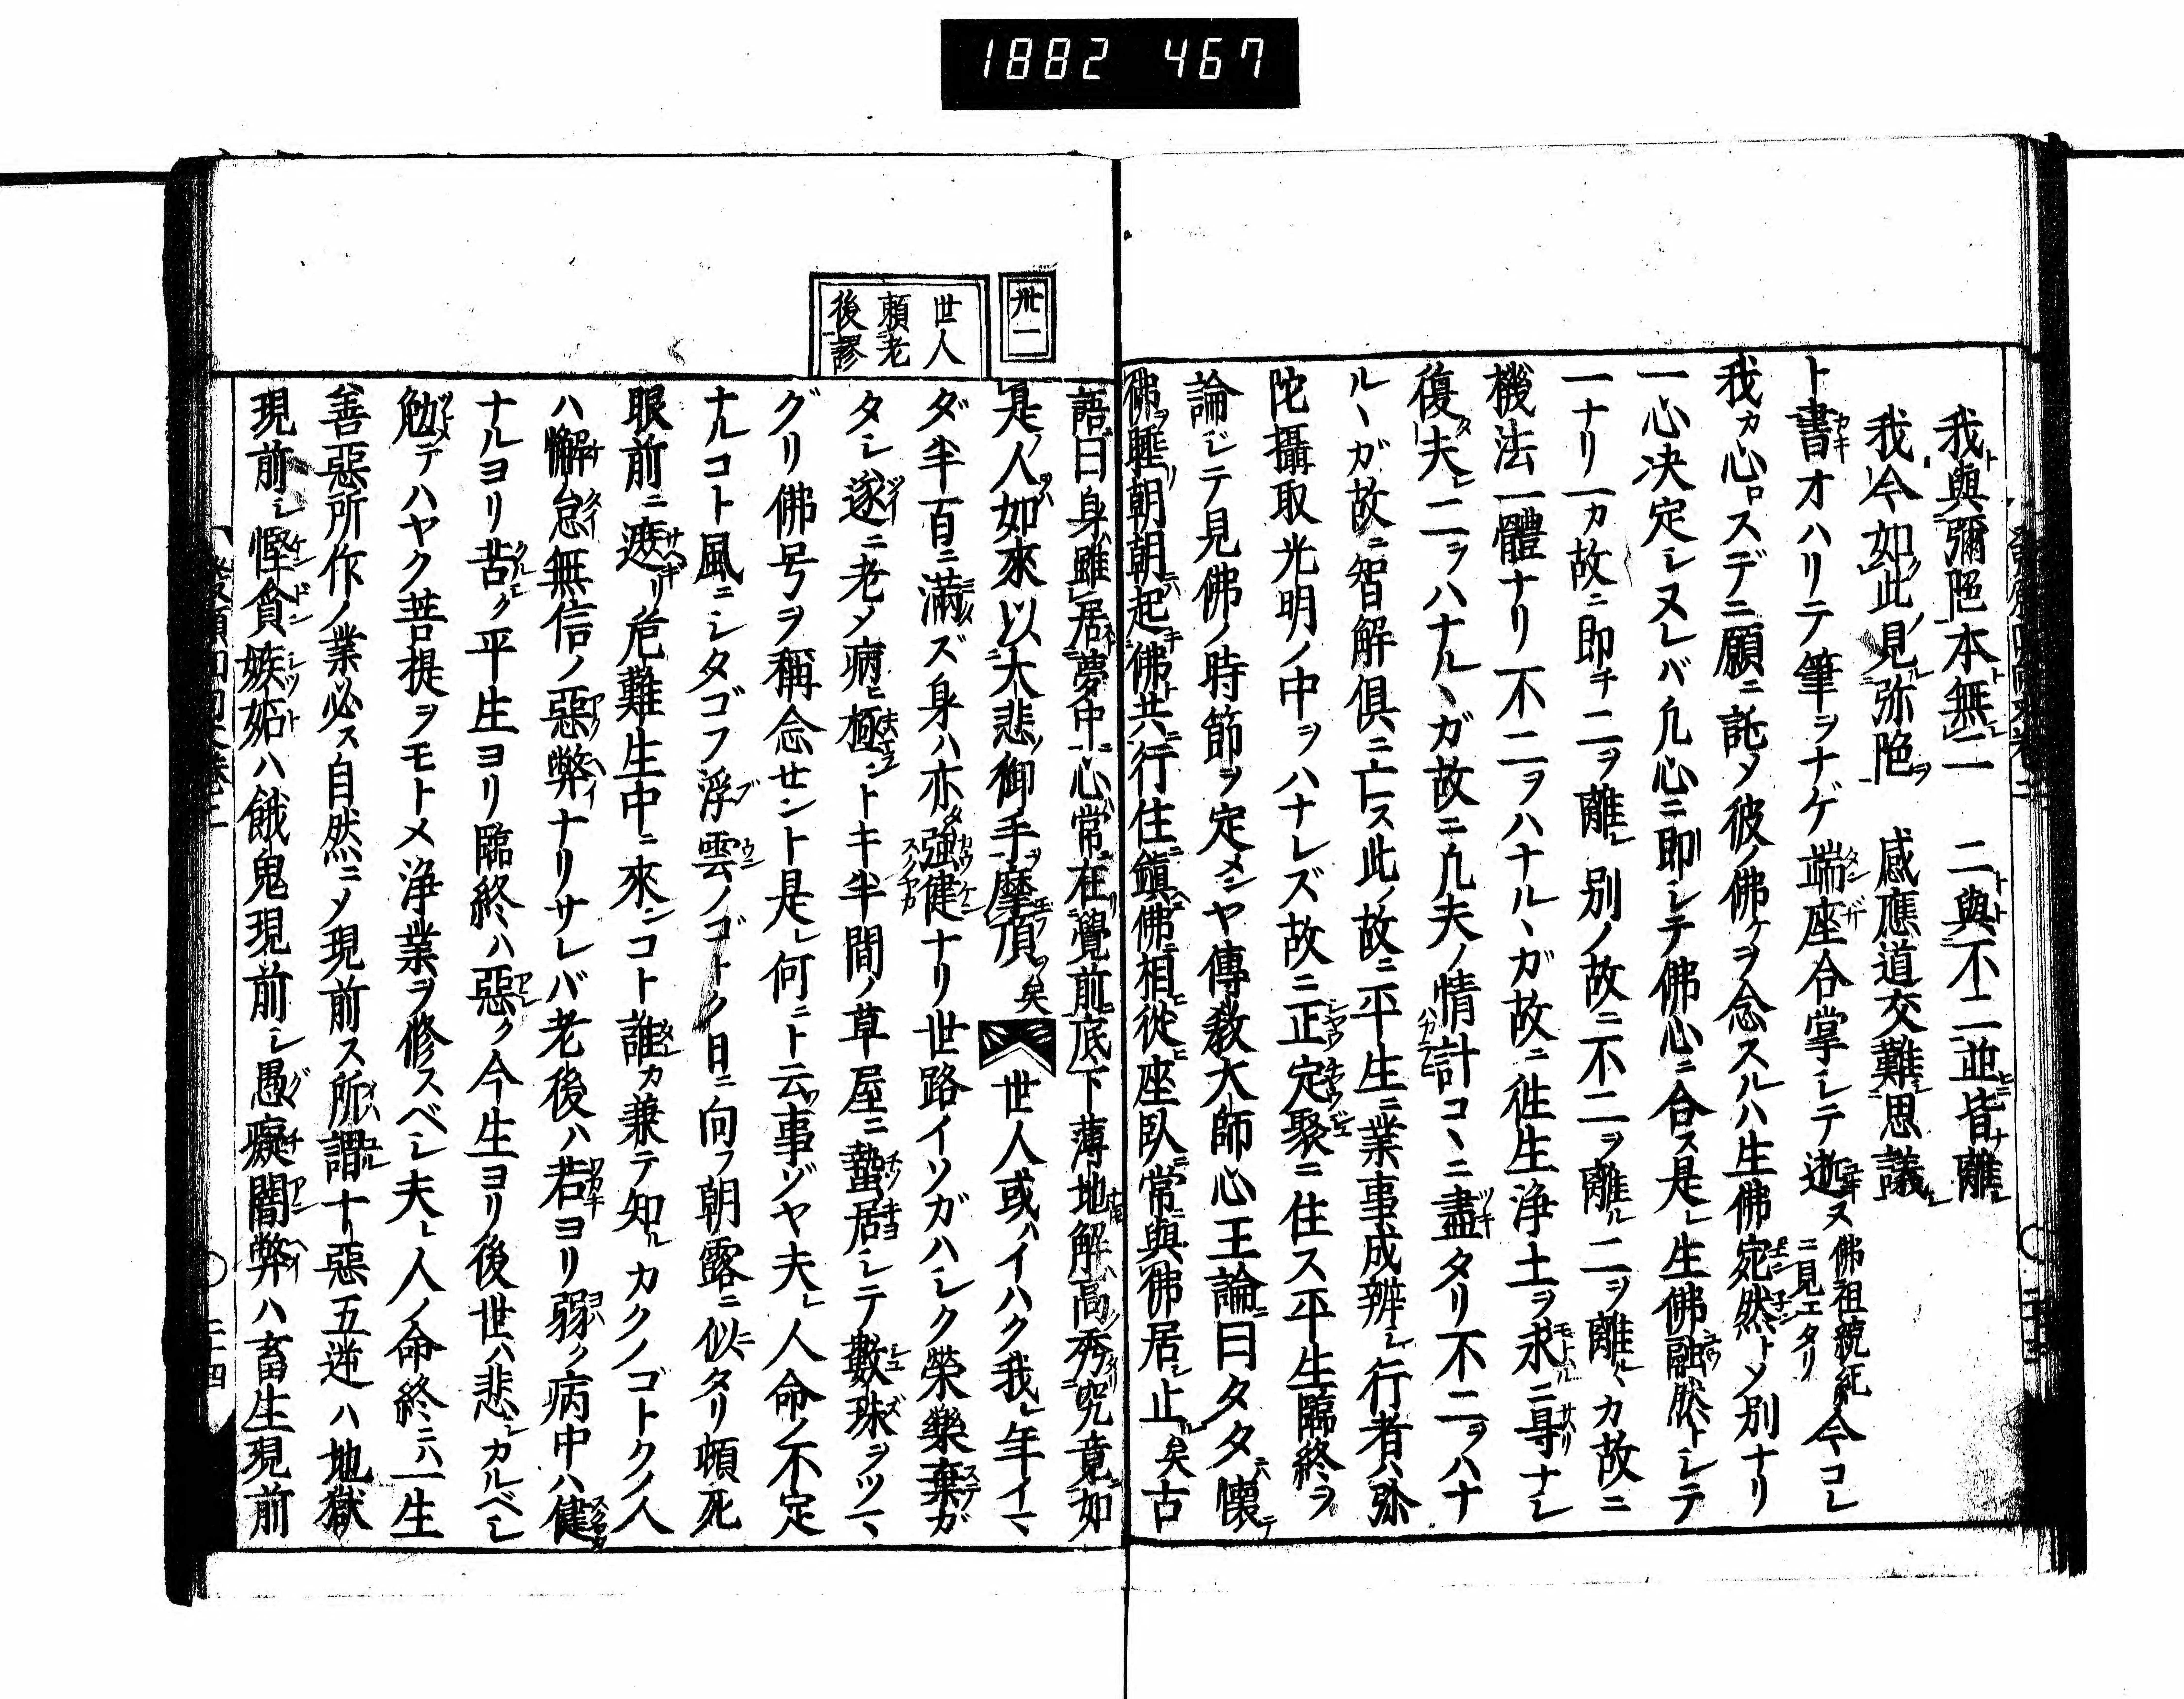 1882 467
我與彌陀本無二　二與不二並皆離
我今如此見弥陀　感應道交難思議
ト書オハリテ筆ヲナゲ端座合掌シテ逝ス佛祖統紀ニ見エタリ今コレ
我カ心ロスデニ願ニ託メ彼ノ佛ケヲ念スルハ生佛宛然トメ別ナリ
一心決定シヌレバ凡心ニ即シテ佛心ニ合ス是レ生佛融然トシテ
一ナリ一カ故ニ即チ二ヲ離レ別ノ故ニ不二ヲ離ル二ヲ離ルヽカ故ニ
機法一體ナリ不二ヲハナルヽガ故ニ往生淨土ヲ求ニ尋ナシ
復夫レ二ヲハナルヽガ故ニ凡夫ノ情計コヽニ盡タリ不二ヲハナ
ルヽガ故ニ智解俱ニ亡ス此ノ故ニ平生ニ業事成辨シ行者ハ弥
陀攝取光明ノ中ヲハナレズ故ニ正定聚ニ住ス平生臨終ヲ
論ジテ見佛ノ時節ヲ定メンヤ傳教大師心王論ニ曰タタ懷テ
佛ヲ睡リ朝朝起キ佛ト共ニ行住ニ鎭ヘニ佛ニ相從ヒ座臥ニ常ニ與佛居シ止ル矣古
卅一
世人
賴老
後謬
語曰身雖居夢中ニ心常在リ覺前ニ底下薄地解ハ高ク秀タリ究竟ニ如
是ノ人如來以大悲ノ御手ヲ摩頂ヲ矣世人或ハイハク我レ年イマ
ダ半百ニ滿ズ身ハ亦強健ナリ世路イソガハシク榮樂棄ガ
タシ遂ニ老メ病ヒ極ントキ半間ノ草屋ニ蟄居シテ數珠ヲツマ
グリ佛号ヲ稱念セント是レ何ニト云事ヅヤ夫レ人命ノ不定
ナルコト風ニシタゴフ浮雲ノゴトク日ニ向フ朝露ニ似タリ頓死
眼前ニ遮リ危難生中ニ來ンコト誰カ兼テ知ルカクノゴトクノ人
ハ懈怠無信ノ惡弊ナリサレバ老後ハ若ヨリ弱ク病中ハ健
ナルヨリ苦ク平生ヨリ臨終ハ惡ク今生ヨリ後世ハ悲シカルベシ
勉テハヤク菩提ヲモトメ淨業ヲ修スベシ夫レ人ノ命終ニハ一生
善惡所作ノ業必ス自然ニメ現前ス所謂十惡五逆ハ地獄
現前シ慳貪嫉妬ハ餓鬼現前シ愚癡闇弊ハ畜生現前